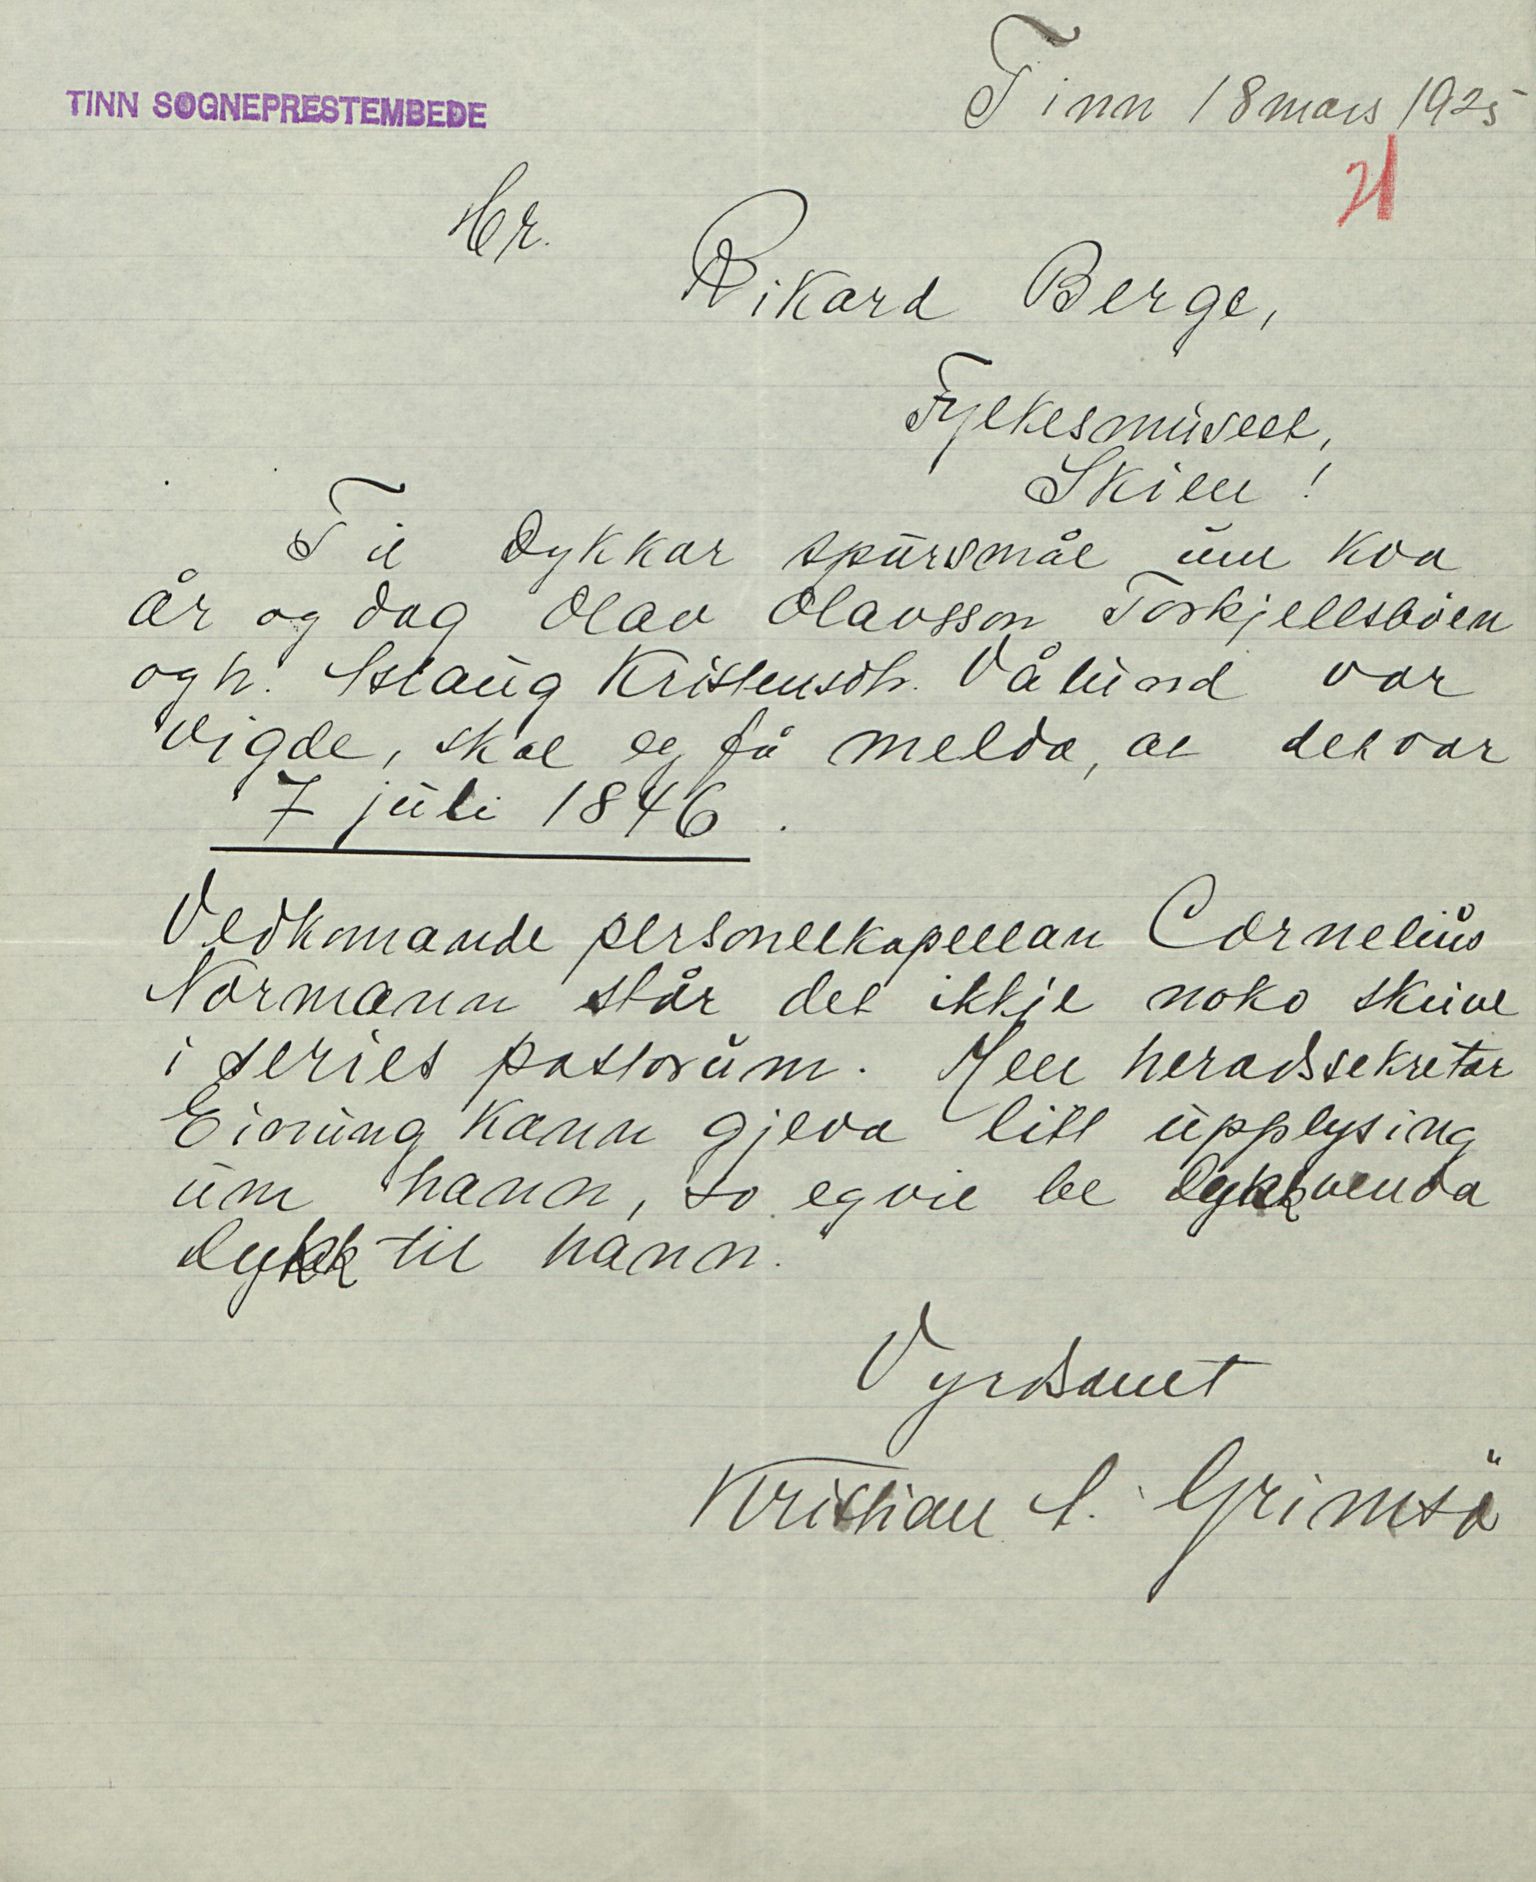 TINN SOGNEPRESTEMBEDE
Tinn 18 mars 1925
21
Hr.
Rikard Berge,
Fylkesmuseet,
Skien!
Til dykkar spursmål um kva
år og dag Olav Olavsson Torkjellsbøen
og h. Aslaug Kristensdtr. Vålund var
vigde, skal eg få melda, at det var
7 juli 1846.
Vedkomande personellkapellan Cornelius
Normann står det ikkje noko skrive
i series pastorum. Men heradssekretær
Einung kann gjeva litt upplysing
um hann, so eg vil be dykk venda
dykk til hann.
Vyrdsamt
Kristian S. Grimsö